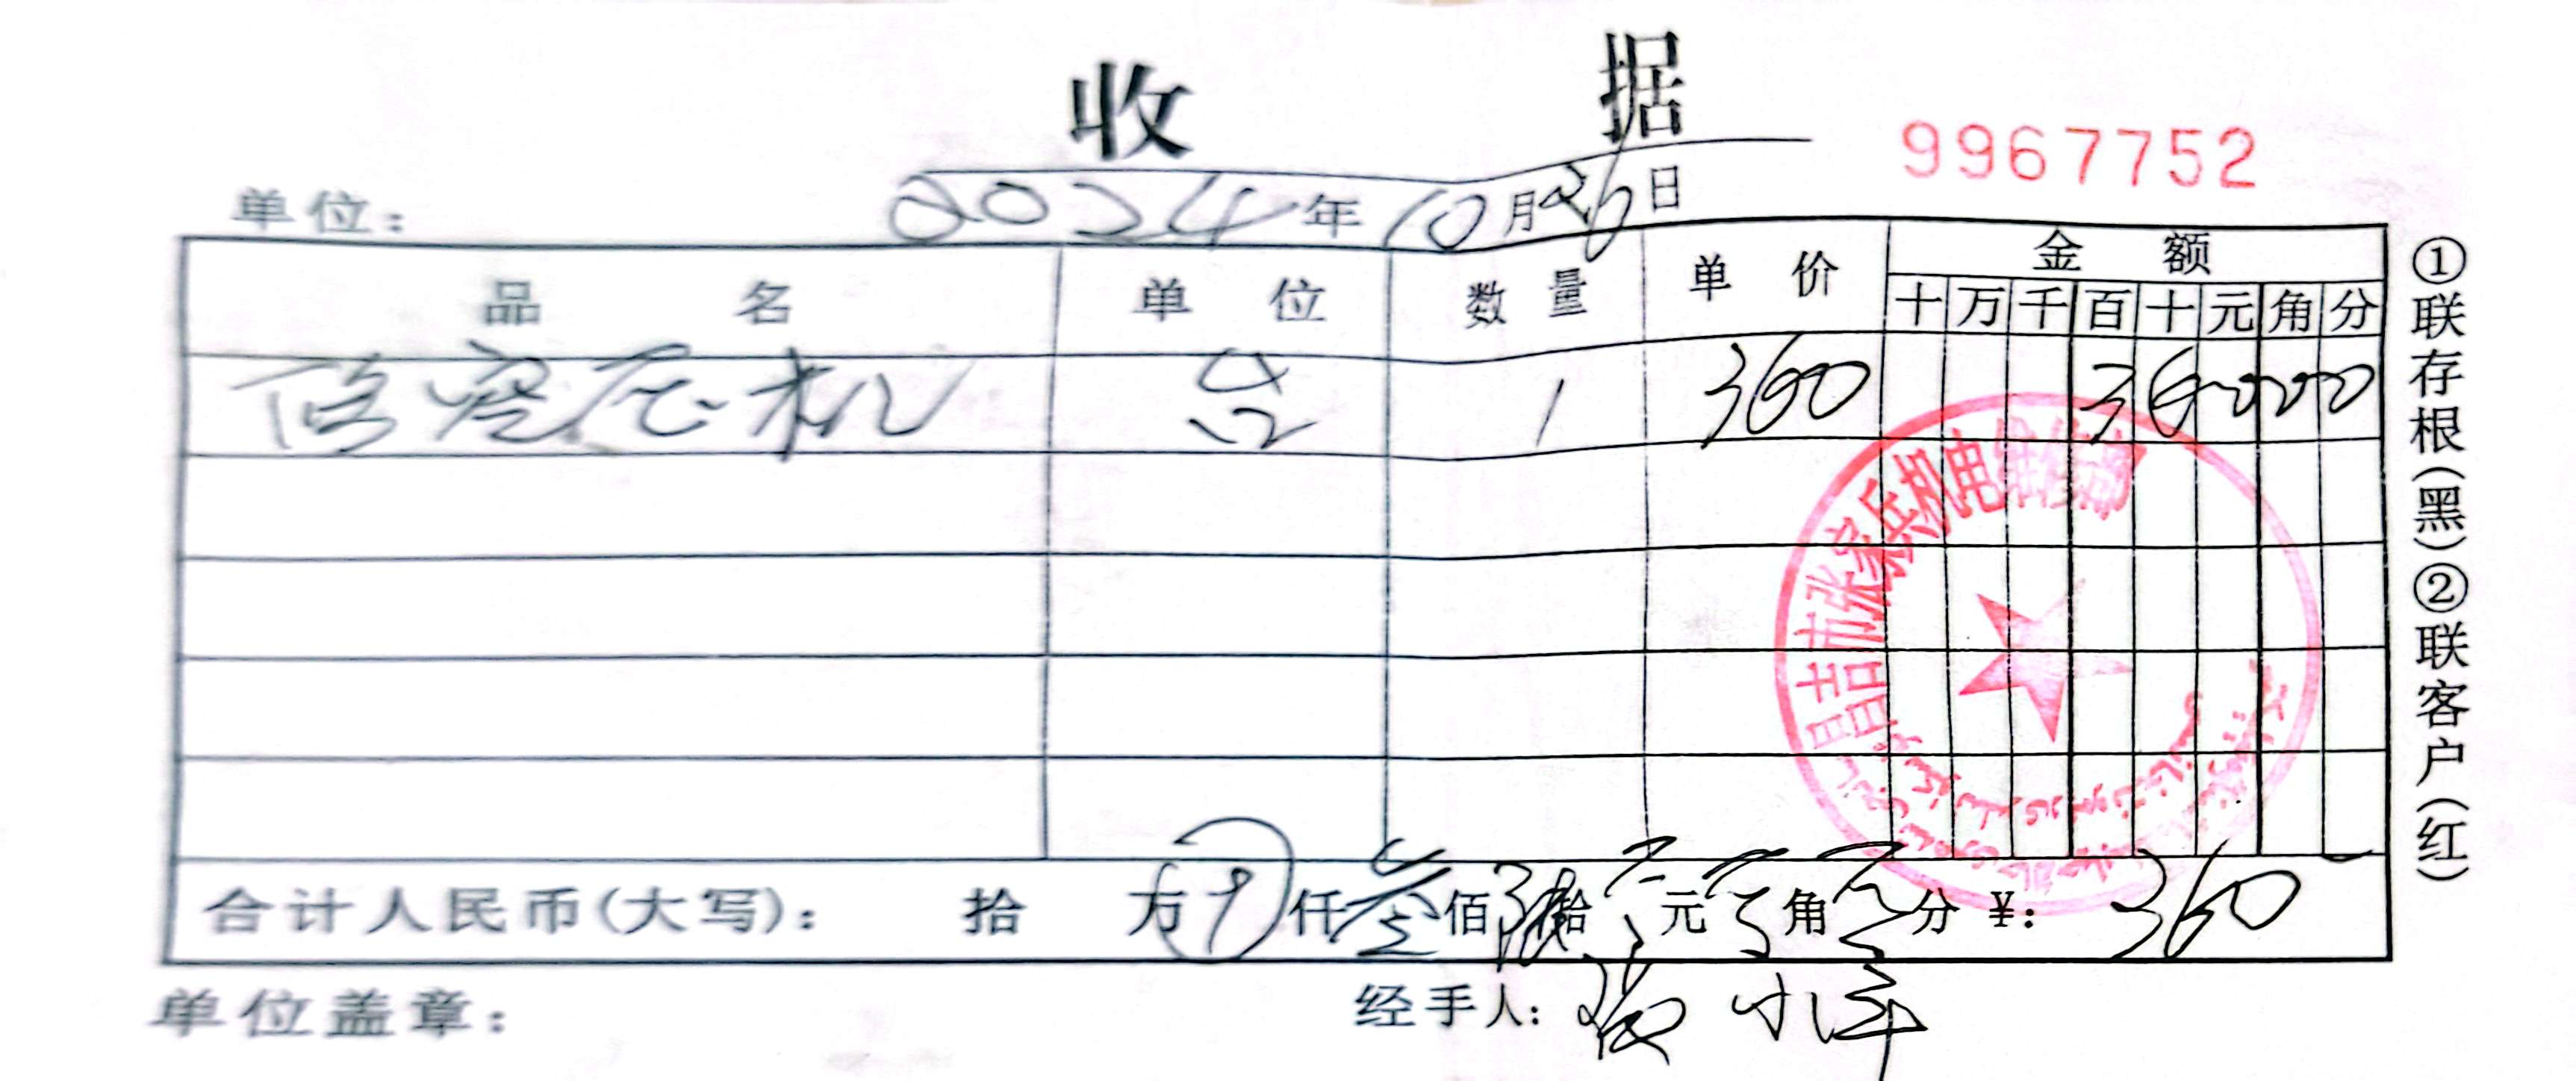 收 据
9967752
单位: 2024年10月26日
品 名 单 位 数 量 单 价 金 额
十 万 千 百 十 元 角 分
修空压机 台 1 360 36000
昌吉市张家兵机电
合计人民币(大写): 拾 万 仟叁佰陆拾零元零角零分 ¥: 360
单位盖章: 经手人:
①联存根(黑)②联客户(红)